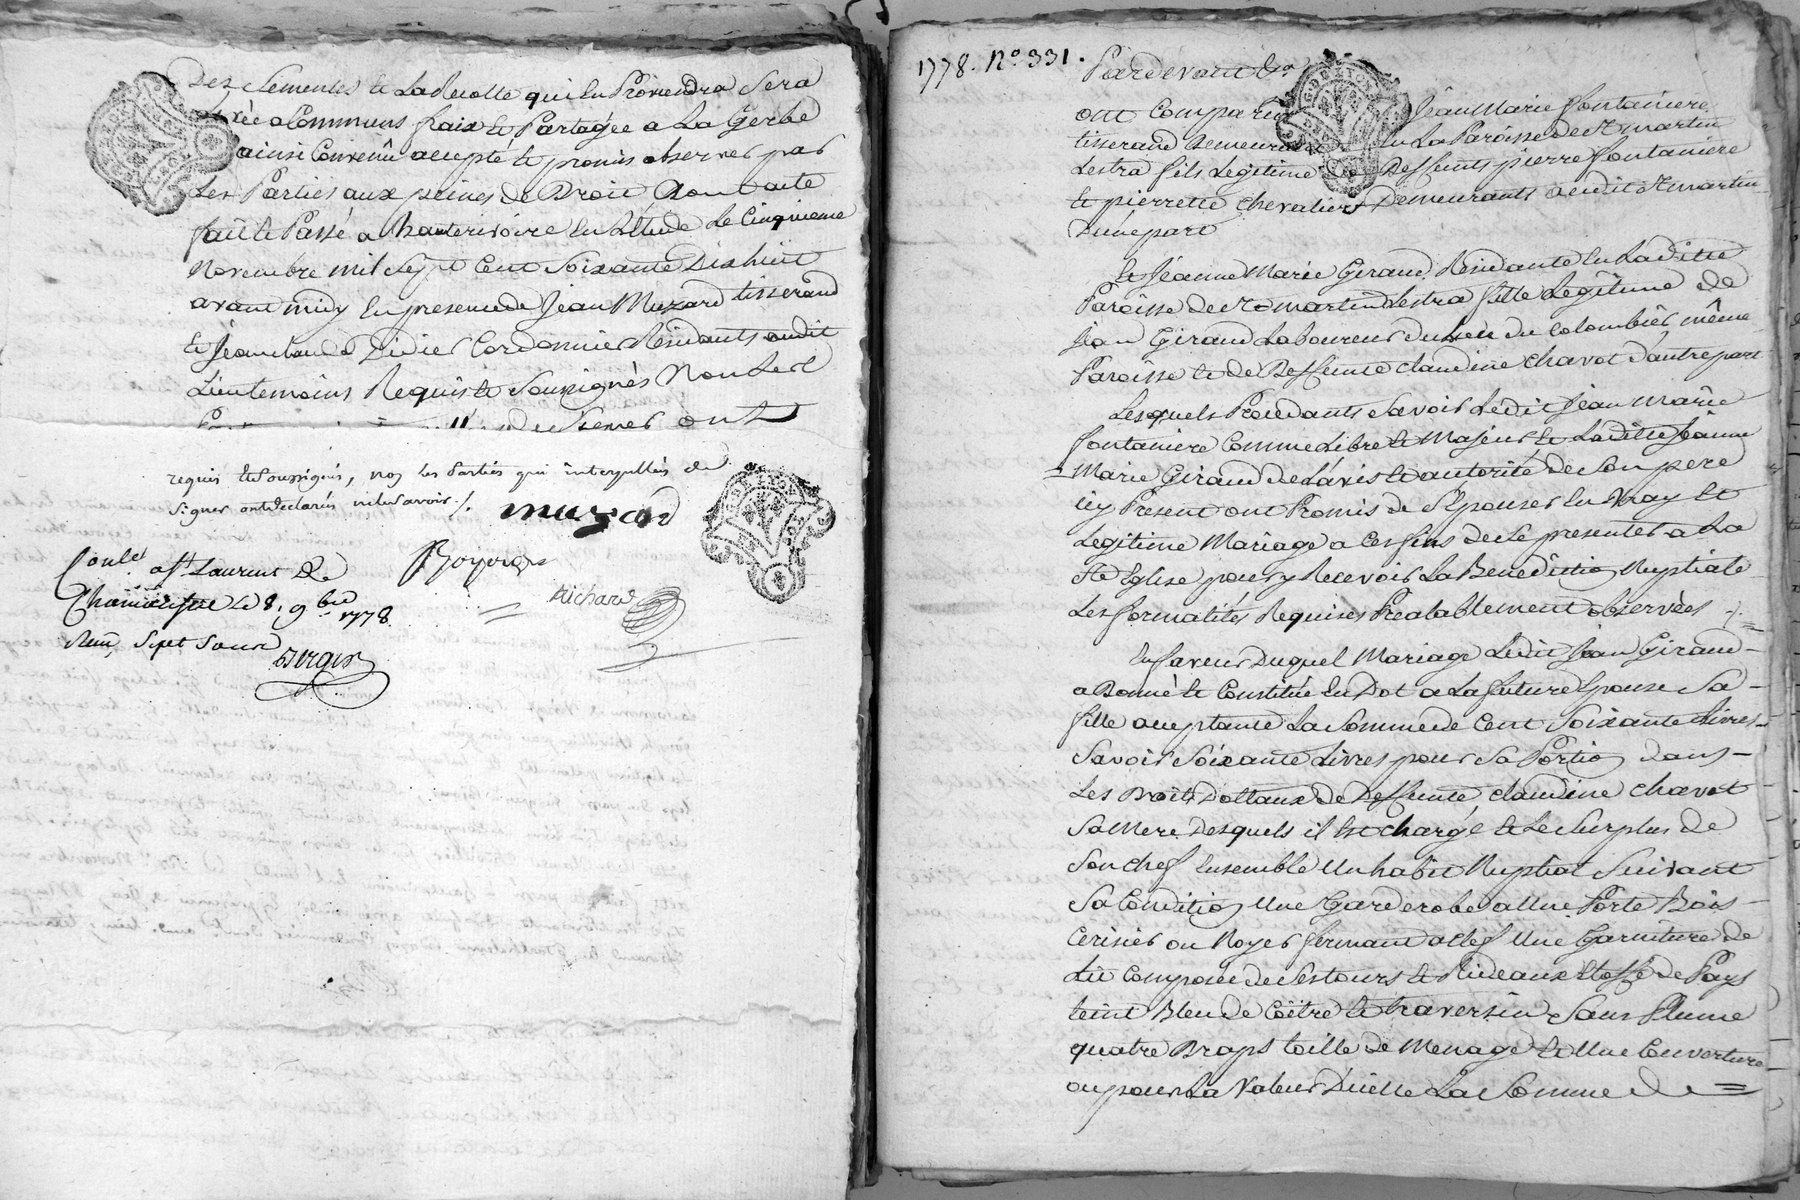 Dez Semences et La Recolte qui En Proviendra Sera
a Communs fraix et Partagée a La Gerbe
ainsi Convenû accepté et promis observer par
Les Parties aux peines de Droit Dont acte
fait et Passé a hauterivoire En L'Etude Le Cinquieme
Novembre mil Sept Cent Soixante Dixhuit
avant midy En presence de Jean Muzard tisserand
et Jean Didier Cordonnier Residants audit
Lieu temoins Requis et Soussignés Non Les
ont
requis et Soussignés, non les Parties qui interpellées de
signer ont declarés ne le Savoir ./.
muzard
Richard
Conlé a St Laurent De
Chamousset Le 8. 9bre 1778
Reçu Sept Sous
1778. No 331.
Pardevant
ont Comparu Jean Marie fontaniere
tisserand Demeurant En La Paroisse de St martin
Lestra fils Legitime Deffunts pierre fontaniere
et pierrette Chevalier Demeurants audit St martin
D'une part
Et Jeanne Marie Giraud Residante En Laditte
Paroisse de St martin Lestra fille Legitime de
Jean Giraud Laboureur du Lieu du Colombier même
Paroisse et de Deffunte Claudine Chavot d'autre part
Lesquels Procedants Savoir Ledit Jean Marie
fontaniere Comme Libre et Majeur et Laditte Jeanne
Marie Giraud de L'avis et autorité de Son pere
icy Present ont Promis de S'Epouser En Vray et
Legitime Mariage a Ces fins de Se presenter a La
Ste Eglise pour y Recevoir La Benediction Nuptiale
Les formalités Requises Prealablement observées ./.
En faveur Duquel Mariage Ledit Jean Giraud
a Donné et Constitué En Dot a La future Epouse Sa
fille acceptante La Somme de Cent Soixante Livres
Savoir Soixante Livres pour Sa Portion dans
Les Droits Dottaux de Deffunte Claudine Chavot
Sa Mere Desquels il Est chargé et Le Surplus de
Son Chef Ensemble Un habit Nuptial Suivant
Sa Condition Une Garderobe a Une Porte Bois
Cerisier ou Noyer fermant a Clef Une Garniture de
Lit Composée de Ses tours et Rideaux Etoffe de Pays
teint Bleu de Coitre et traversin Sans Plume
quatre Draps toille de Menage et Une Couverture
ou pour La Valeur D'icelle La Somme de